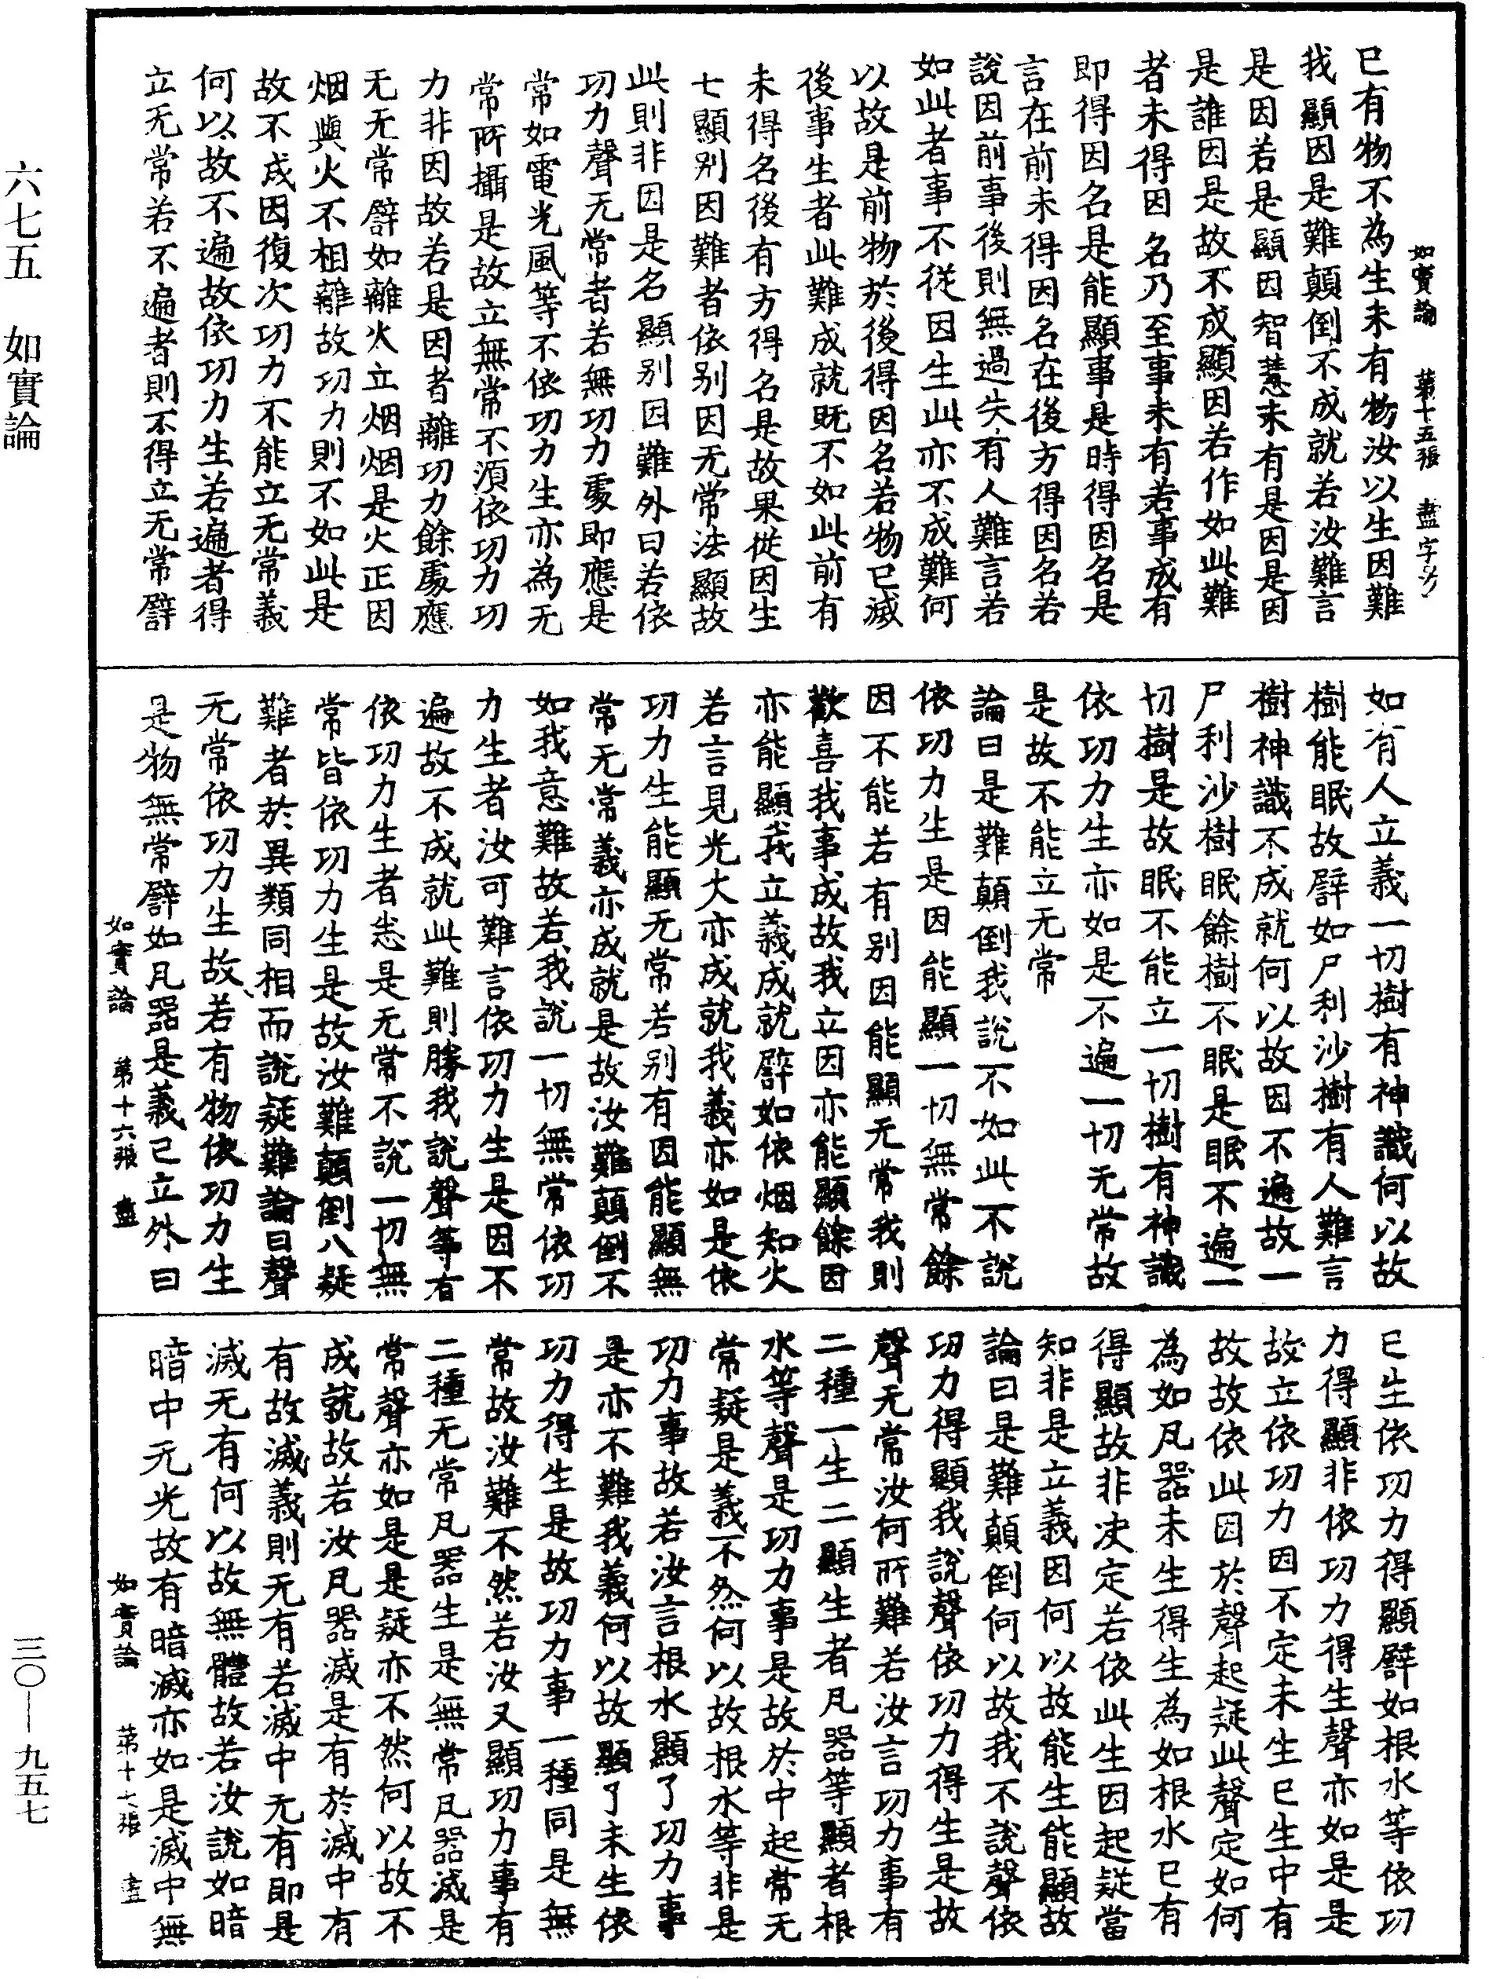 如實論　第十五張　盡字号
已有物不為生未有物汝以生因難
我顯因是難顛倒不成就若汝難言
是因若是顯因智慧未有是因是因
是誰因是故不成顯因若作如此難
者未得因名乃至事未有若事成有
即得因名是能顯事是時得因名是
言在前未得因名在後方得因名若
說因前事後則無過失有人難言若
如此者事不從因生此亦不成難何
以故是前物於後得因名若物已滅
後事生者此難成就既不如此前有
未得名後有方得名是故果從因生
七顯別因難者依別因无常法顯故
此則非因是名顯別因難外曰若依
功力聲无常者若無功力處即應是
常如電光風等不依功力生亦為无
常所攝是故立無常不湏依功力功
力非因故若是因者離功力餘處應
无无常譬如離火立烟烟是火正因
烟與火不相離故功力則不如此是
故不成因復次功力不能立无常義
何以故不遍故依功力生若遍者得
立无常若不遍者則不得立无常譬
如有人立義一切樹有神識何以故
樹能眠故譬如尸利沙樹有人難言
樹神識不成就何以故因不遍故一
尸利沙樹眠餘樹不眠是眠不遍一
切樹是故眠不能立一切樹有神識
依功力生亦如是不遍一切无常故
是故不能立无常
論曰是難顛倒我說不如此不說
依功力生是因能顯一切無常餘
因不能若有別因能顯无常我則
歡喜我事成故我立因亦能顯餘因
亦能顯我立義成就譬如依烟知火
若言見光大亦成就我義亦如是依
功力生能顯无常若別有因能顯無
常无常義亦成就是故汝難顛倒不
如我意難故若我說一切無常依功
力生者汝可難言依功力生是因不
遍故不成就此難則勝我說聲等有
依功力生者恙是无常不說一切無
常皆依功力生是故汝難顛倒八疑
難者於異類同相而說疑難論曰聲
无常依功力生故若有物依功力生
是物無常譬如凡器是義已立外曰
如實論　第十六張　盡
已生依功力得顯譬如根水等依功
力得顯非依功力得生聲亦如是是
故立依功力因不定未生已生中有
故故依此因於聲起疑此聲定如何
為如凡器未生得生為如根水已有
得顯故非決定若依此生因起疑當
知非是立義因何以故能生能顯故
論曰是難顛倒何以故我不說聲依
功力得顯我說聲依功力得生是故
聲无常汝何所難若汝言功力事有
二種一生二顯生者凡器等顯者根
水等聲是功力事是故於中起常无
常疑是義不然何以故根水等非是
功力事故若汝言根水顯了功力事
是亦不難我義何以故顯了未生依
功力得生是故功力事一種同是無
常故汝難不然若汝又顯功力事有
二種无常凡器生是無常凡器滅是
常聲亦如是是疑亦不然何以故不
成就故若汝凡器滅是有於滅中有
有故滅義則无有若滅中无有即是
滅无有何以故無體故若汝說如暗
暗中无光故有暗滅亦如是滅中無
如實論　第十七張　盡
六七五　如實論
三〇—九五七